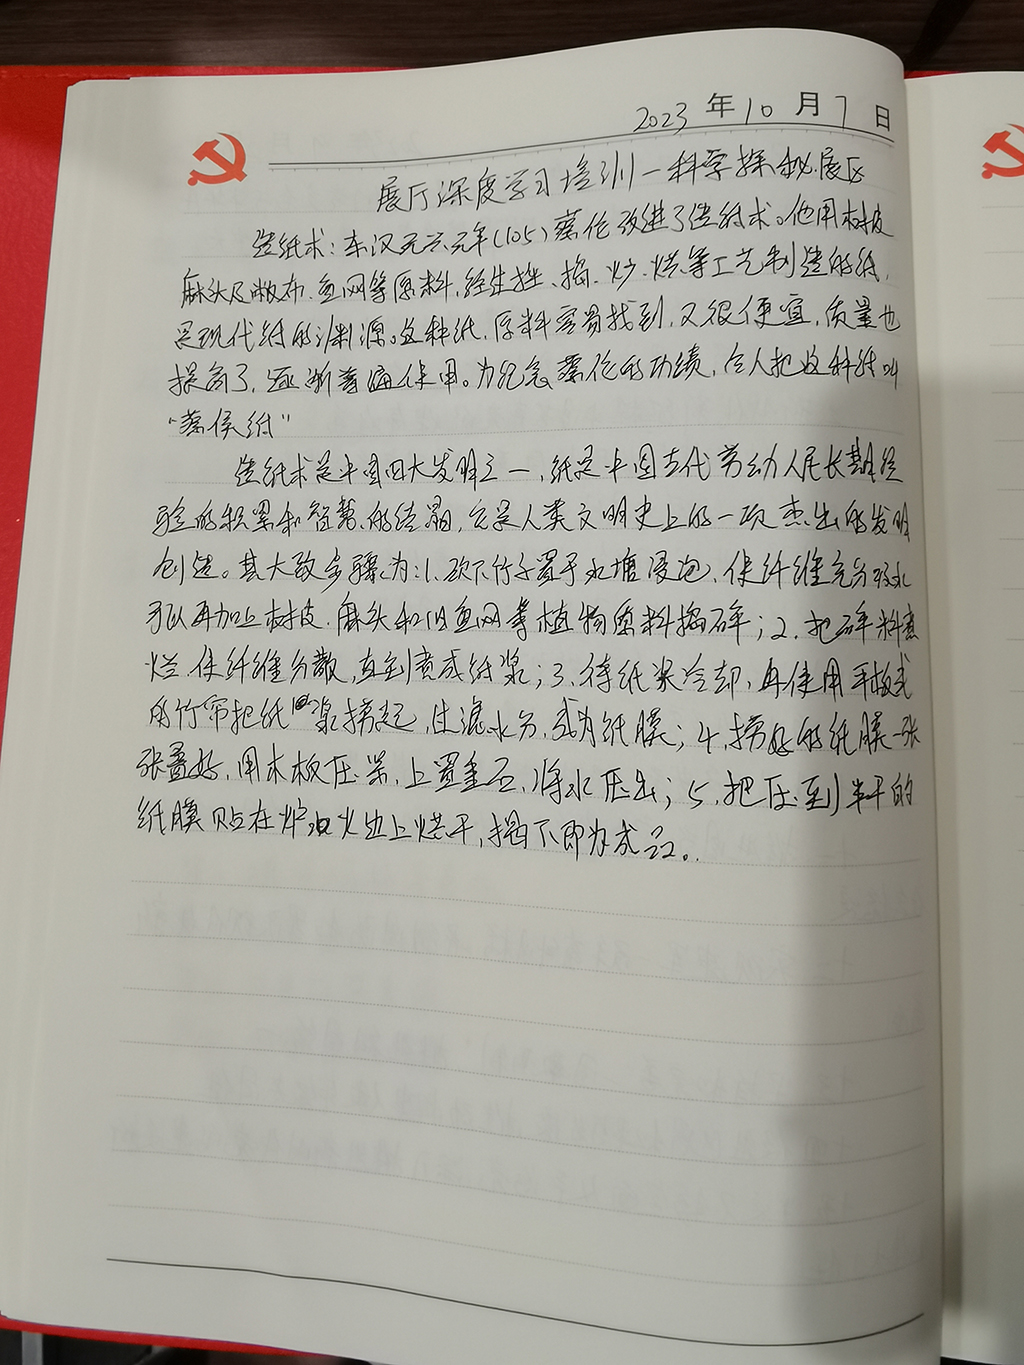 2023 年 10 月 7 日
展厅深度学习培训—科学探秘展区
造纸术：东汉元兴元年(105)蔡伦改进了造纸术。他用树皮
麻头及敝布、鱼网等原料,经生挫、捣、炒、烘等工艺制造的纸,
是现代纸的渊源。这种纸,原料容易找到,又很便宜,质量也
提高了,逐渐普遍使用。为纪念蔡伦的功绩,后人把这种纸叫
“蔡侯纸”
造纸术是中国四大发明之一,纸是中国古代劳动人民长期经
验的积累和智慧的结晶,它是人类文明史上的一项杰出的发明
创造。其大致步骤为:1.砍下竹子置于水塘浸泡,使纤维充分吸水
可以再加上树皮、麻头和旧鱼网等植物原料捣碎;2.把碎料煮
烂,使纤维分散,直到煮成纸浆;3.待纸浆冷却,再使用平板式
的竹帘把纸浆捞起,过滤水分,成为纸膜;4.捞好的纸膜一张
张叠好,用木板压紧,上置重石,将水压出;5.把压到半干的
纸膜贴在炉火边上烘干,揭下即为成品。